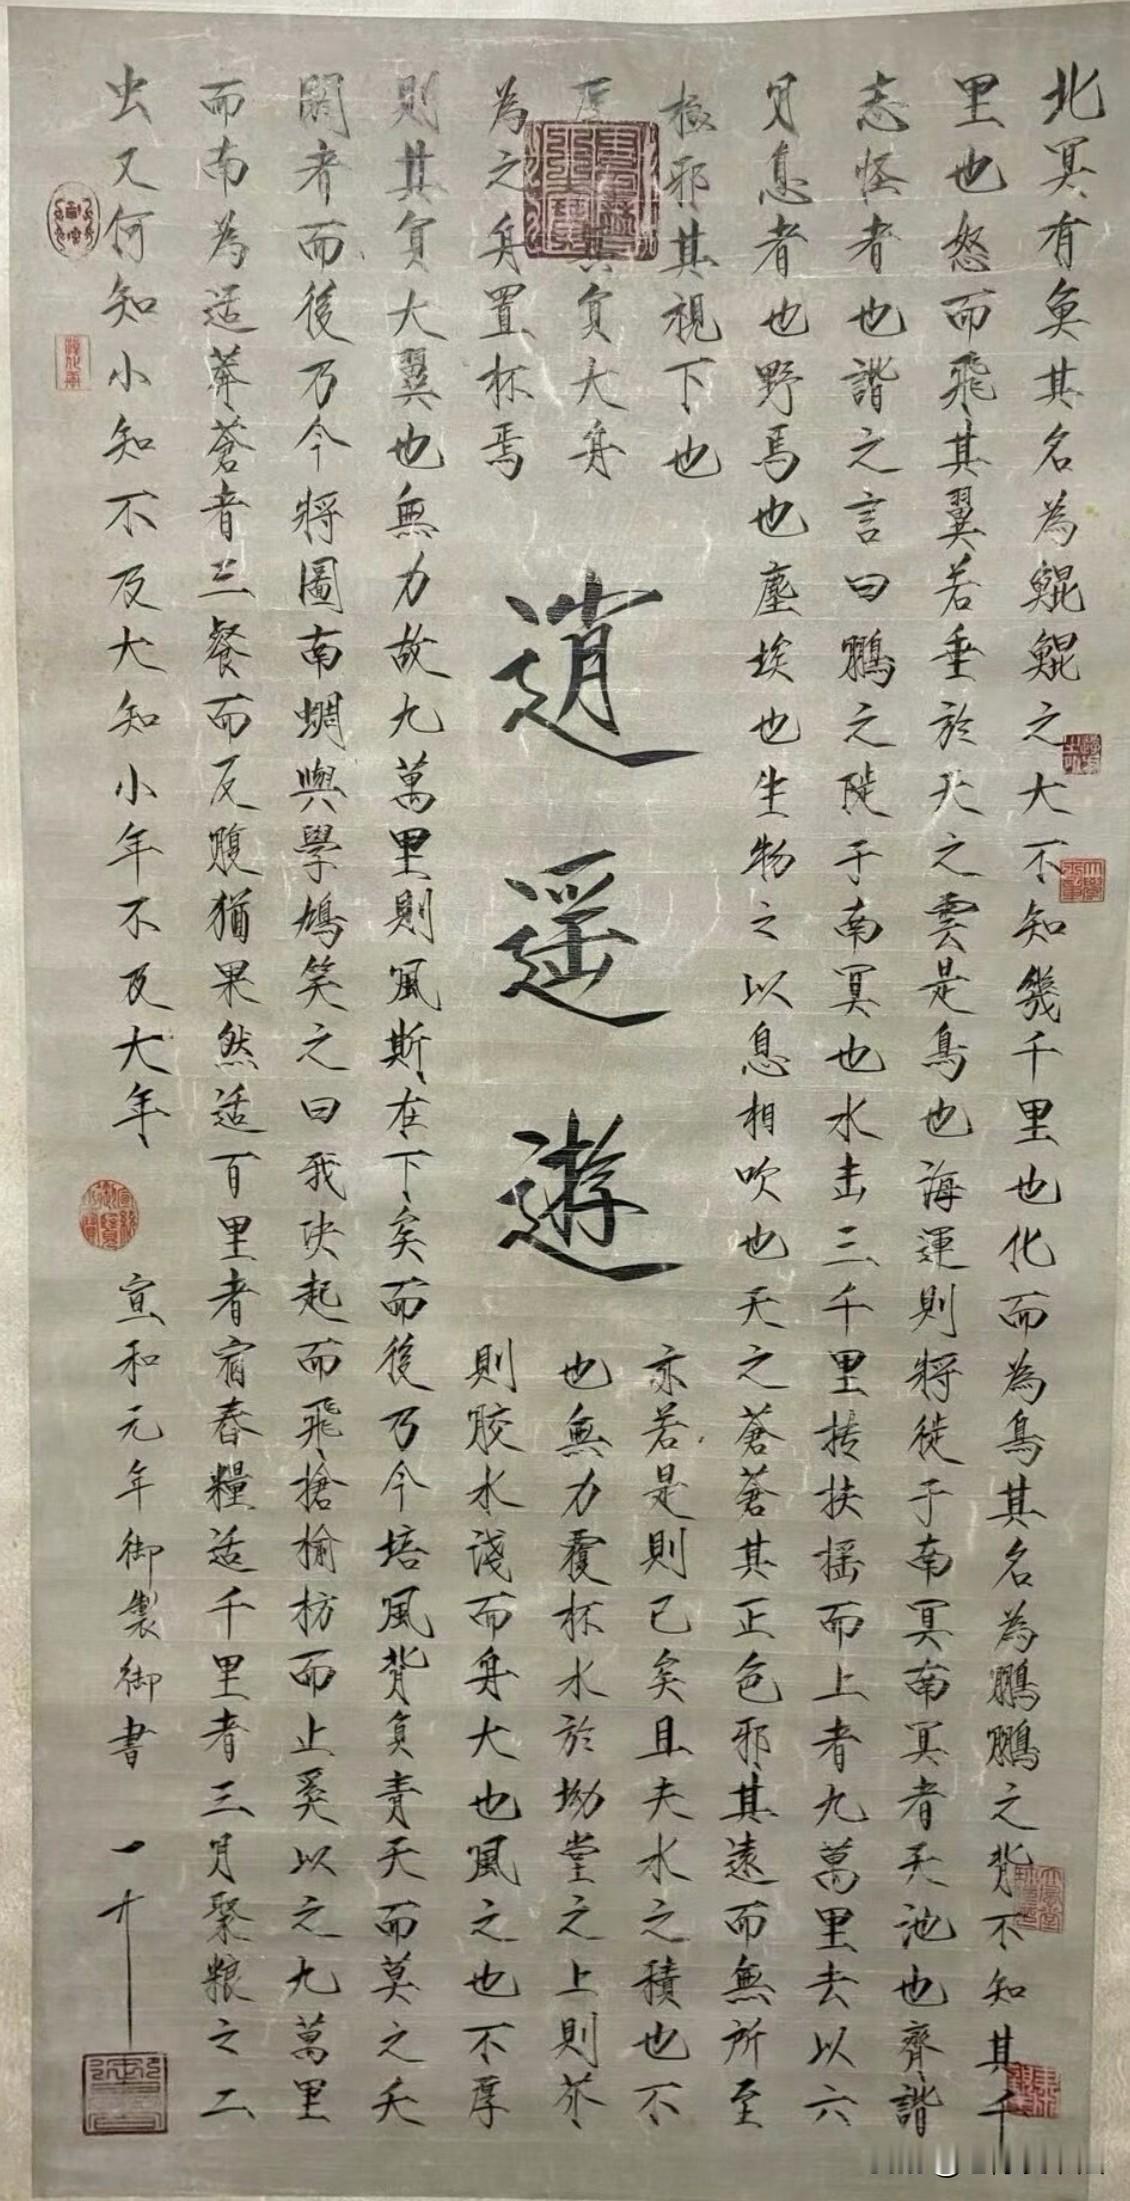 北冥有魚其名為鯤鯤之大不知幾千里也化而為鳥其名為鵬鵬之背不知其千
里也怒而飛其翼若垂於天之雲是鳥也海運則將徙于南冥南冥者天池也齊諧
志怪者也諧之言曰鵬之徙于南冥也水击三千里抟扶摇而上者九萬里去以六
月息者也野馬也塵埃也生物之以息相吹也天之蒼蒼其正色邪其遠而無所至
極邪其視下也亦若是則已矣且夫水之積也不
厚負大舟也無力覆杯水於坳堂之上則芥
為之舟置杯焉則胶水淺而舟大也風之也不厚
逍遥遊
則其負大翼也無力故九萬里則風斯在下矣而後乃今培風背負青天而莫之夭
閼者而後乃今將圖南蜩與學鳩笑之曰我決起而飛搶榆枋而止奚以之九萬里
而南為适莽蒼者三餐而反腹猶果然适百里者宿舂糧适千里者三月聚粮之二
虫又何知小知不及大知小年不及大年
宣和元年御製御書